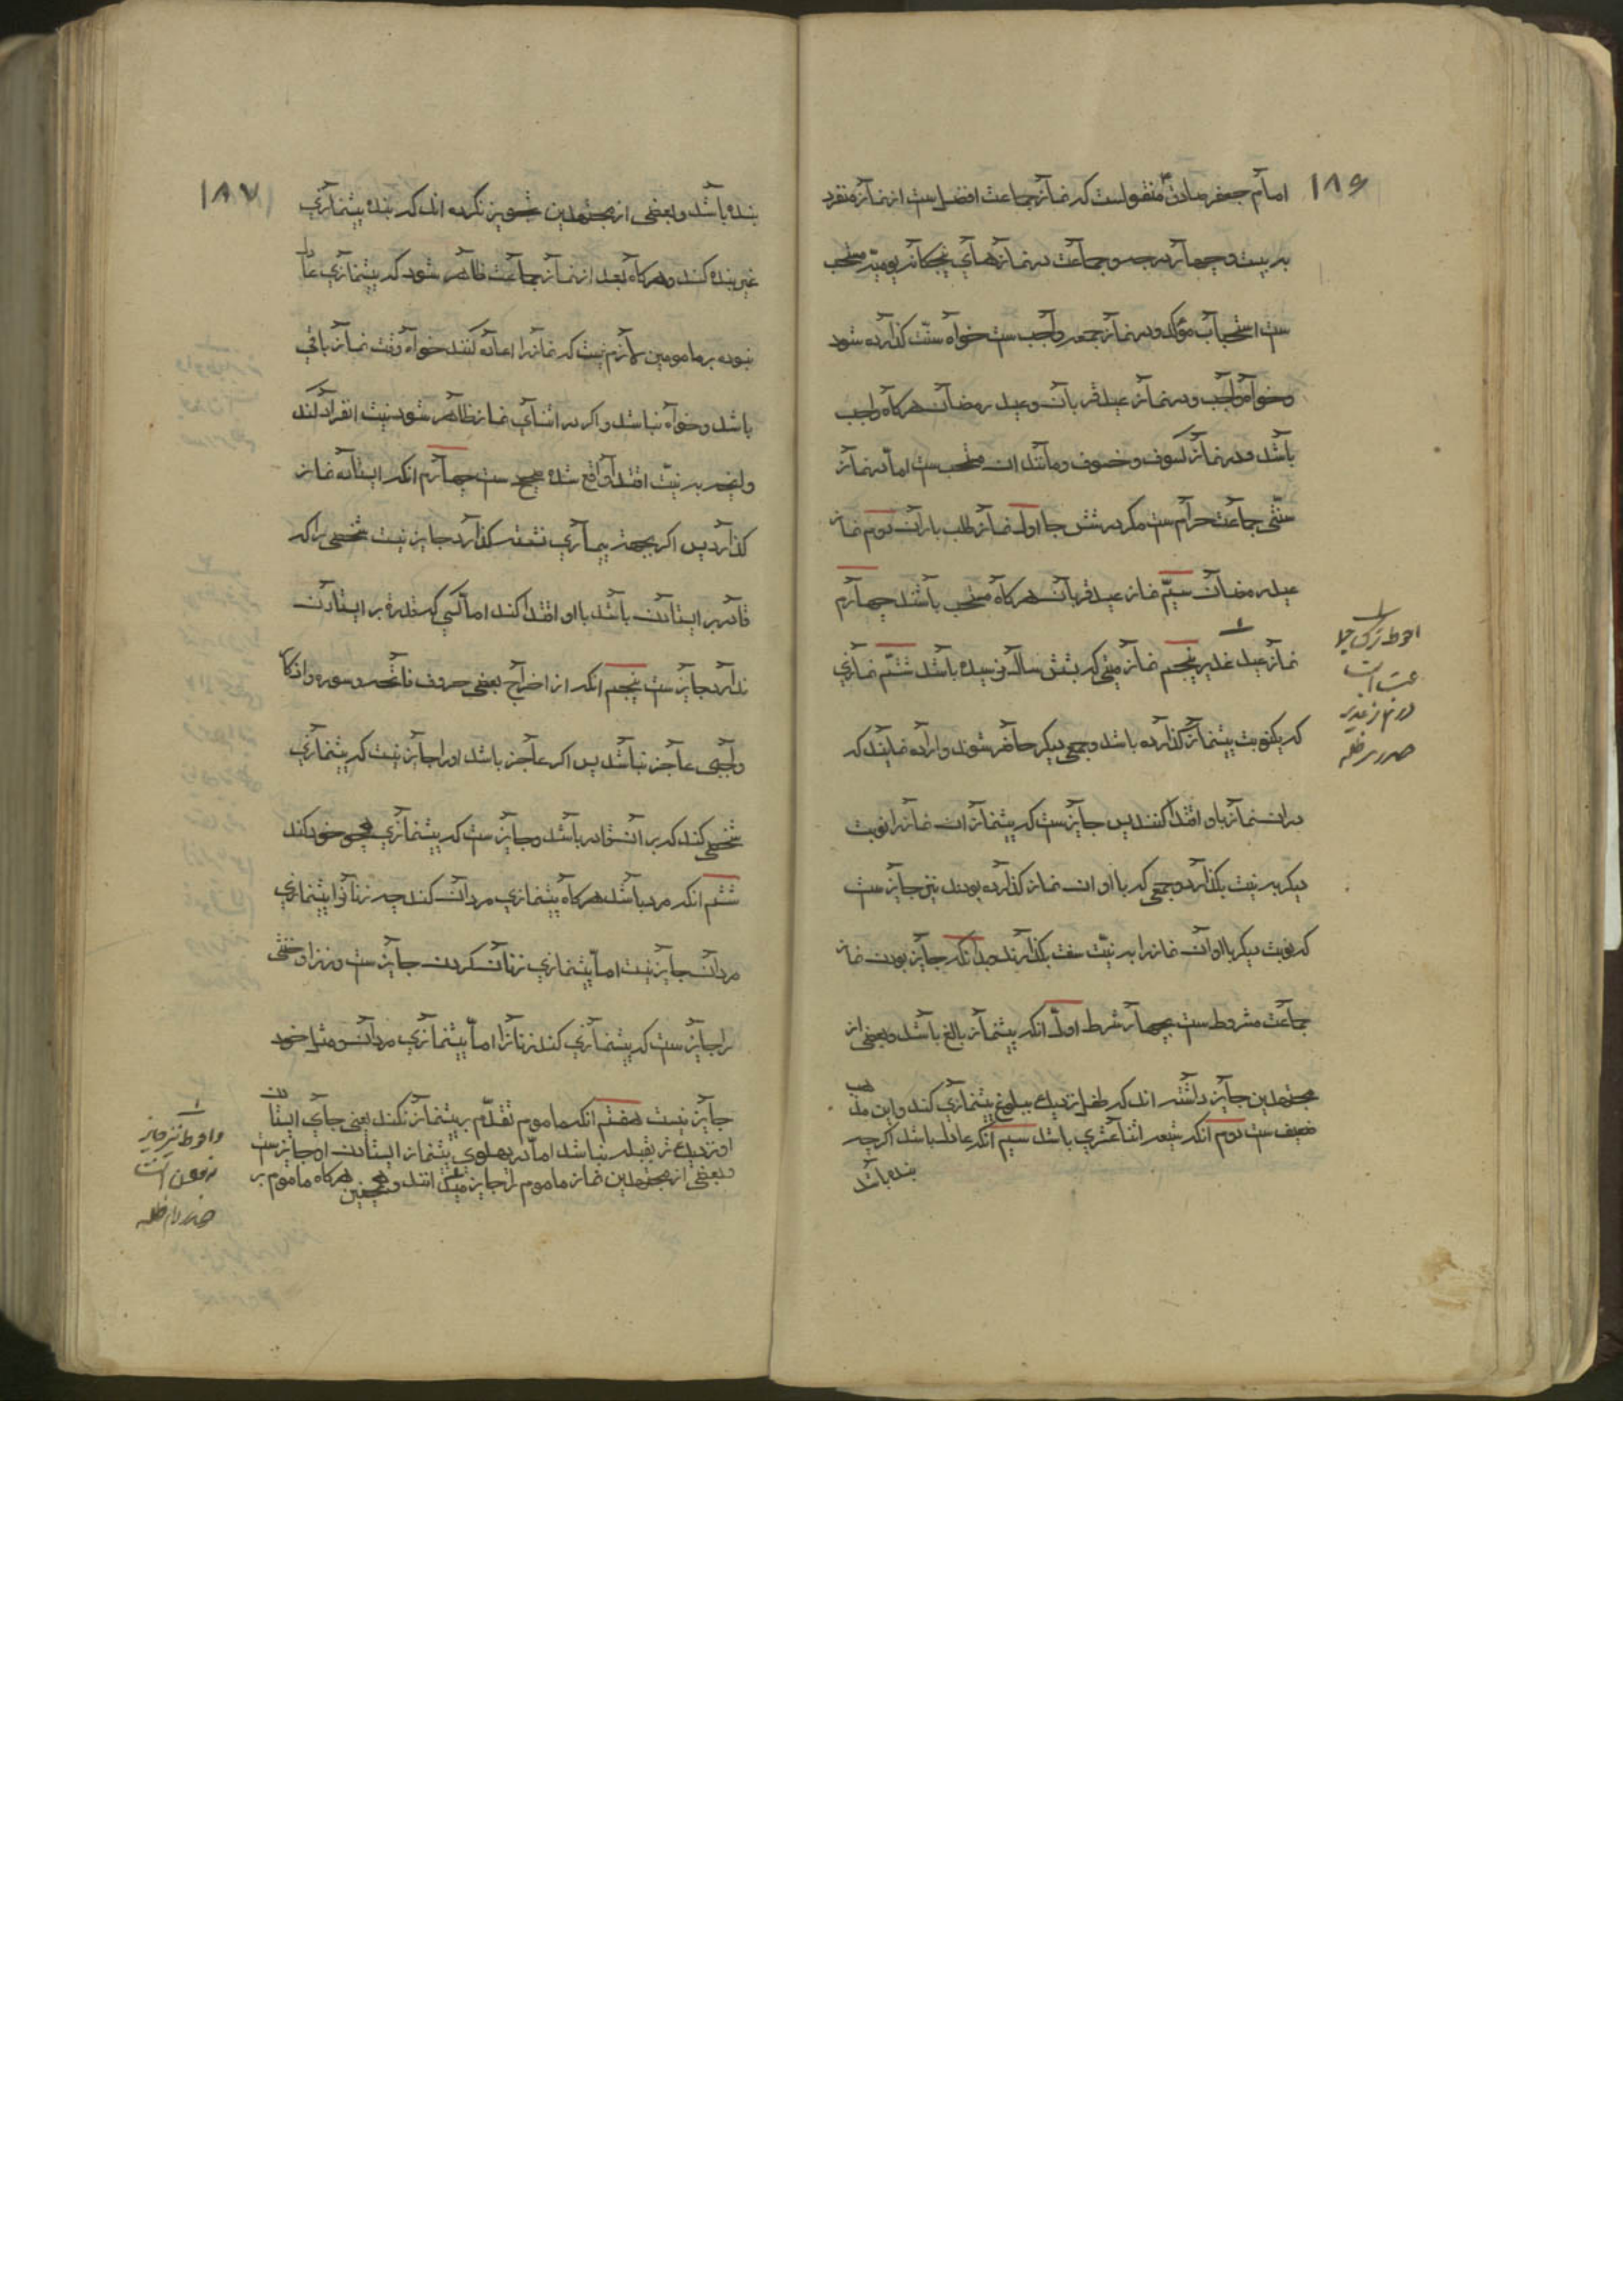 ۱۸۶
امام جعفر صادق ع منقولست که نماز جماعت افضل ست از نماز منفرد
به بیست و چهار درجه و جماعت در نمازهای پنجکانه یومیه مستحب
ست استحباب مؤکد و در نماز جمعه واجب ست خواه سنت کذارده شود
و خواه واجب و در نماز عید قربان و عید رمضان هرکاه واجب
باشد و در نماز کسوف و خسوف و مانند ان مستحب ست اما در نماز
سنتی جماعت حرام ست مکر در شش جا اول نماز طلب باران دوم نماز
عید رمضان سیم نماز عید قربان هرکاه مستحب باشد چهارم
نماز عید غدیر پنجم نماز میتی که بشش سالکی نرسیده باشد ششم نمازی
که یکنوبت پیشنماز کذارده باشد و جمعی دیکر حاضر شوند و اراده نمایند که
در ان نماز باو اقتدا کنند پس جایز ست که پیشنماز ان نماز را نوبت
دیکر به نیت بکذارد و جمعی که با او ان نماز کذارده بودند نیز جایز ست
که نوبت دیکر با او ان نماز را به نیت سنت بکذارند و بدانکه جایز بودن نماز
جماعت مشروط ست بچهار شرط اول انکه پیشنماز بالغ باشد و بعضی از
مجتهدین جایز داشته اند که طفل نزدیک ببلوغ پیشنمازی کند و این مذهب
ضعیف ست دوم انکه شیعه اثنا عشری باشد سیم انکه عادل باشد اکرچه
بنده باشد
احوط ترک جما
عت است
در نماز غدیر
صدر مدظله
۱۸۷
بنده باشد و بعضی از مجتهدین تجویز نکرده اند که بنده پیشنمازی
غیر بنده کند و هرکاه بعد از نماز جماعت ظاهر شود که پیشنمازی عادل
نبوده بر مامومین لازم نیست که نماز را اعاده کنند خواه وقت نماز باقی
باشد و خواه نباشد و اکر در اثنای نماز ظاهر شود نیت انفراد کند
وانچه به نیت اقتدا واقع شده صحیح ست چهارم انکه ایستاده نماز
کذارد پس اکر بجهة بیماری نشسته کذارد جایز نیست شخصی را که
قادر بر ایستادن باشد باو اقتدا کند اما کسی که قدرة بر ایستادن
ندارد جایز ست پنجم انکه از اخراج بعضی حروف فاتحه و سوره و اذکار
واجبی عاجز نباشد پس اکر عاجز باشد او را جایز نیست که پیشنمازی
شخصی کند که بر ان قادر باشد و جایز ست که پیشنمازی همچو خود کند
ششم انکه مرد باشد هرکاه پیشنمازی مردان کند چه زنانرا پیشنمازی
مردان جایز نیست اما پیشنمازی زنان کردن جایز ست و نیز او خنثی
را جایز ست که پیشنمازی کند زنانرا اما پیشنمازی مردان و مثل خود
جایز نیست هفتم انکه ماموم تقدم بر پیشنماز نکند یعنی جای ایستادن
او نزدیک تر بقبله نباشد اما در پهلوی پیشنماز ایستادن او جایز ست
و بعضی از مجتهدین نماز ماموم را جایز نمیدانند و همچنین هرکاه ماموم بر
واحوط نیز جایز
نبودن است
صدر دام ظله